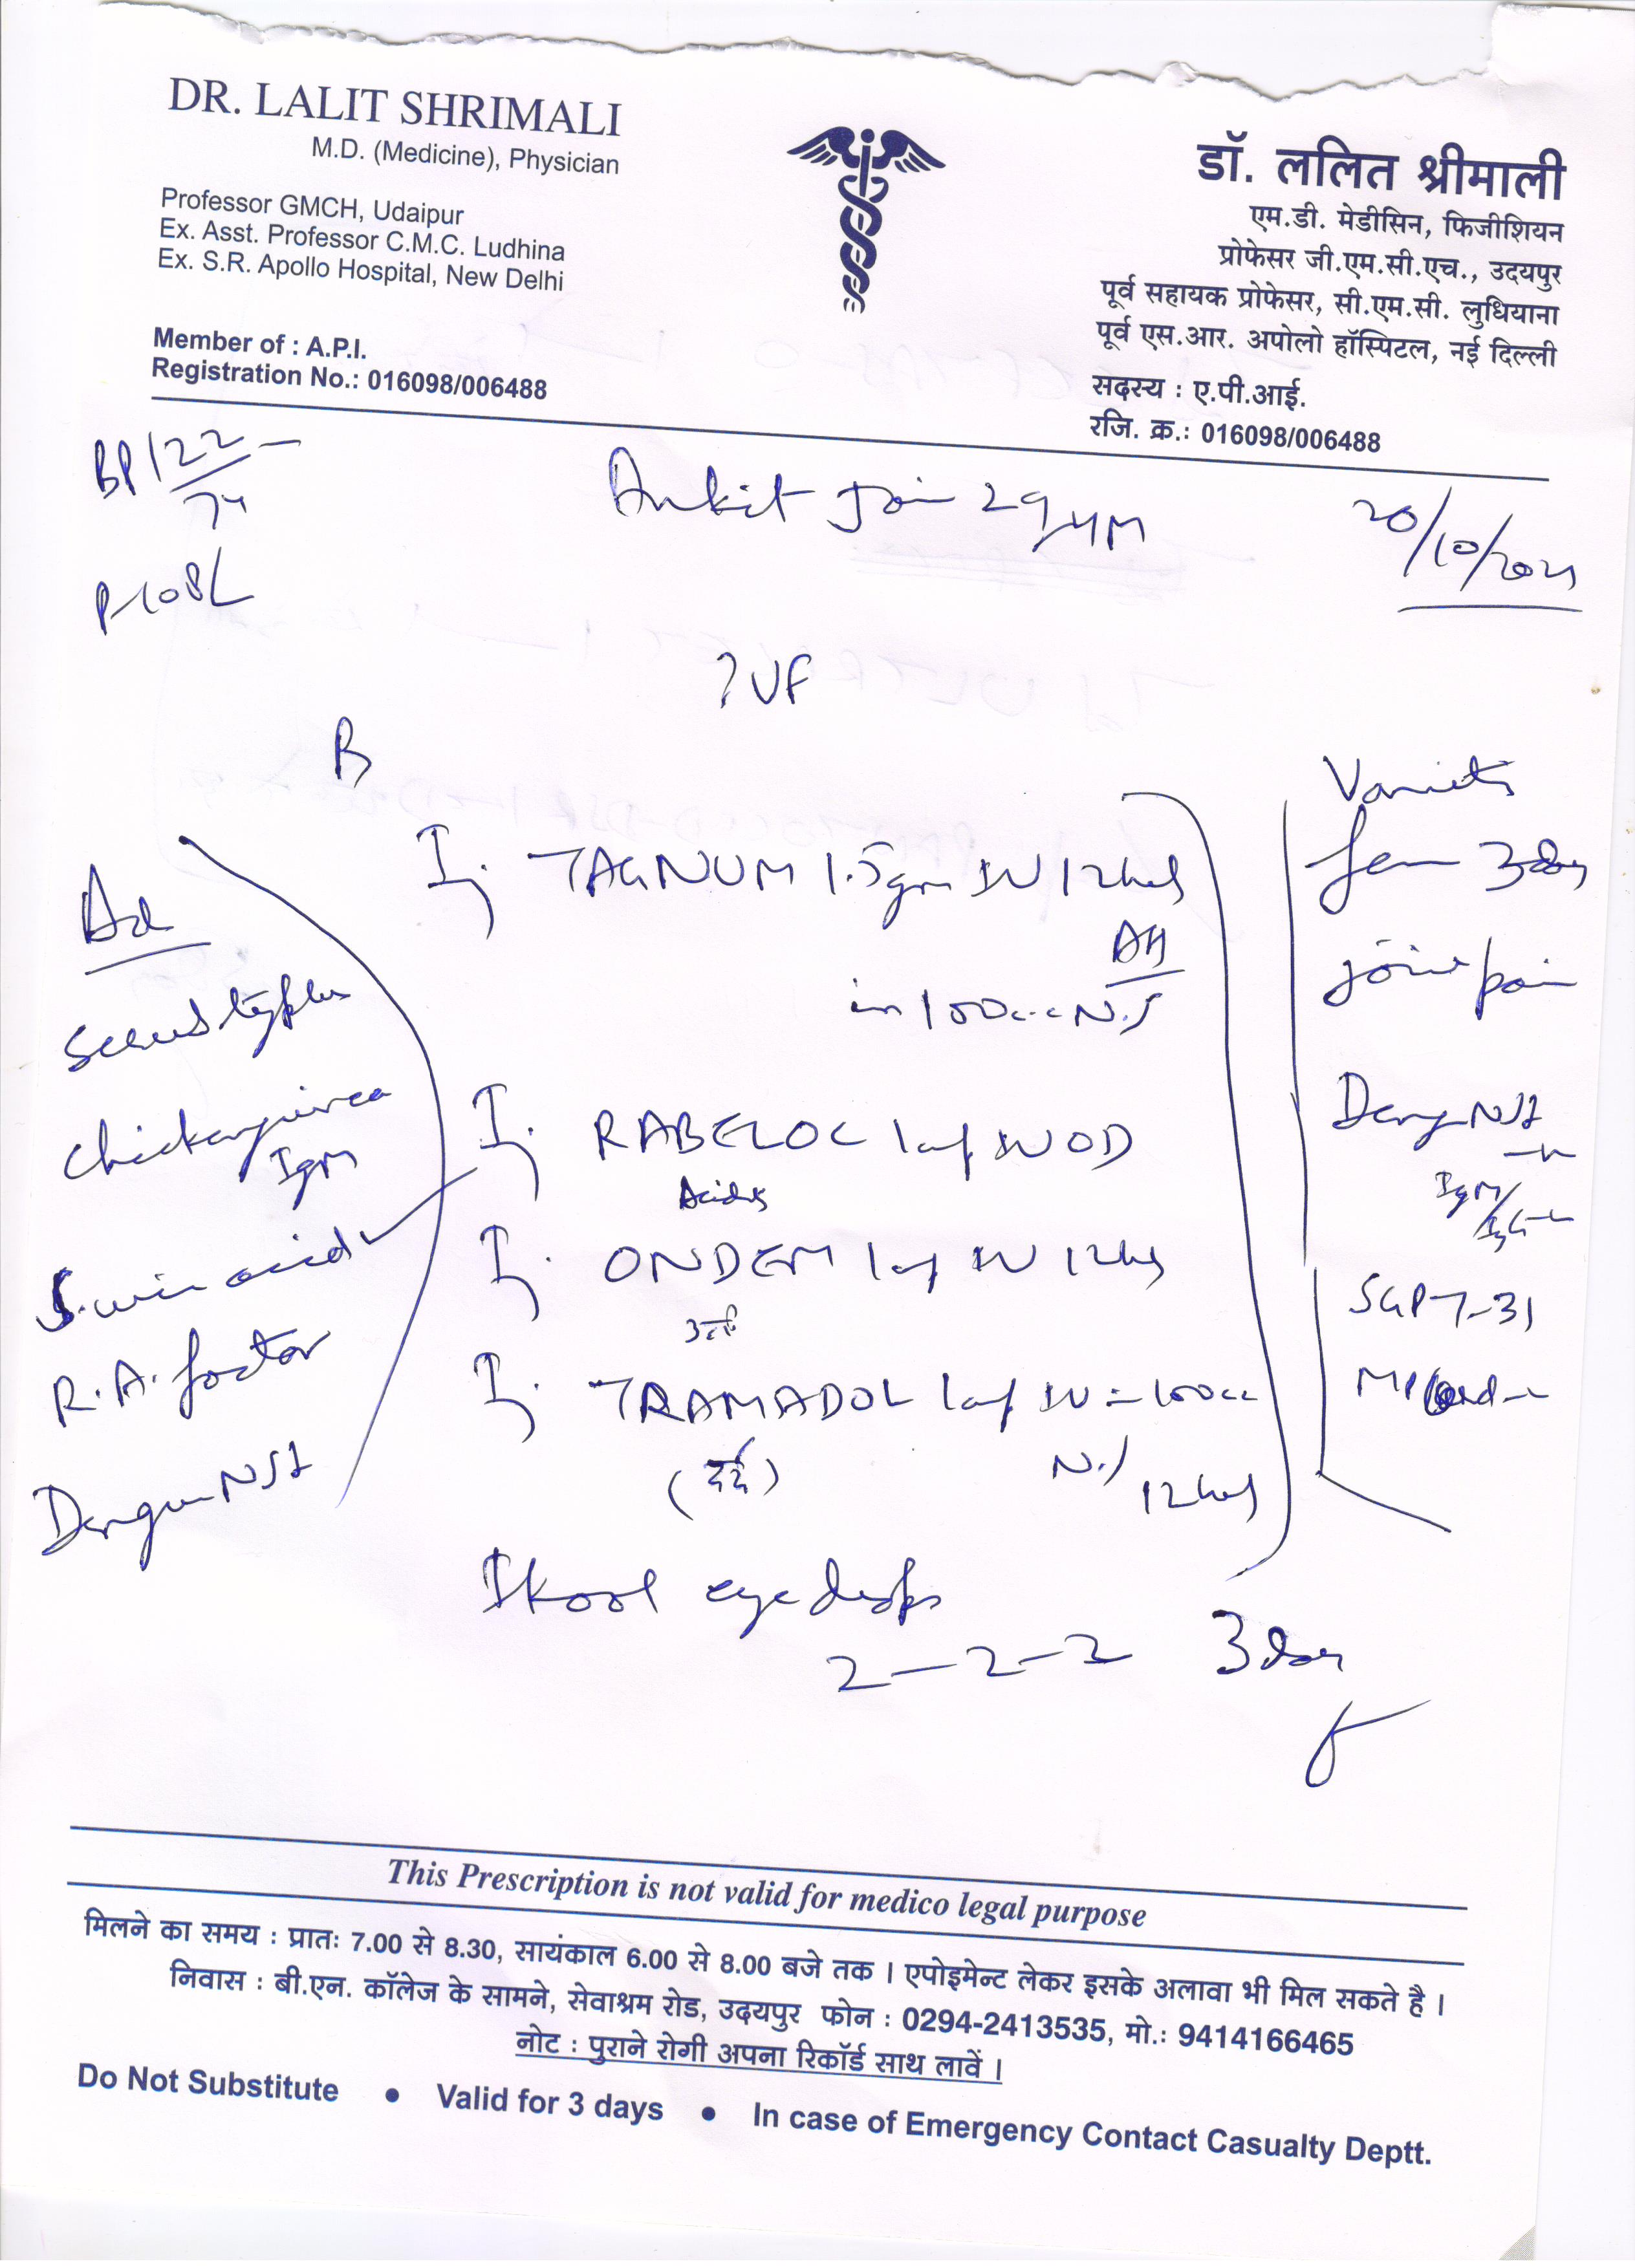 DR. LALIT SHRIMALI
M.D. (Medicine), Physician
Professor GMCH, Udaipur
Ex. Asst. Professor C.M.C. Ludhina
Ex. S.R. Apollo Hospital, New Delhi
Member of : A.P.I.
Registration No.: 016098/006488
डॉ. ललित श्रीमाली
एम.डी. मेडीसिन, फिजीशियन
प्रोफेसर जी.एम.सी.एच., उदयपुर
पूर्व सहायक प्रोफेसर, सी.एम.सी. लुधियाना
पूर्व एस.आर. अपोलो हॉस्पिटल, नई दिल्ली
सदस्य : ए.पी.आई.
रजि. क्र.: 016098/006488
BP 122
74
P-108/
Ankit Jain 29y/M
20/10/2021
? VF
Ad
Chickenguinea
IgM
S. uric acid
R.A. factor
Dengue NS1
I. TAGNUM 1.5gm IV 12hrs
in 100cc N.S
I. RABELOC 1 amp IV OD
I. ONDEM 1 amp IV 12hrs
I. TRAMADOL 1 amp IV in 100cc
(दर्द) N.S 12hrs
Ikool eye drops
2-2-2 3 day
3 days
joint pain
Dengue NS1
IgM/IgG
SGPT-31
This Prescription is not valid for medico legal purpose
मिलने का समय : प्रातः 7.00 से 8.30, सायंकाल 6.00 से 8.00 बजे तक । एपोइमेन्ट लेकर इसके अलावा भी मिल सकते है ।
निवास : बी.एन. कॉलेज के सामने, सेवाश्रम रोड, उदयपुर फोन : 0294-2413535, मो.: 9414166465
नोट : पुराने रोगी अपना रिकॉर्ड साथ लावें ।
Do Not Substitute • Valid for 3 days • In case of Emergency Contact Casualty Deptt.